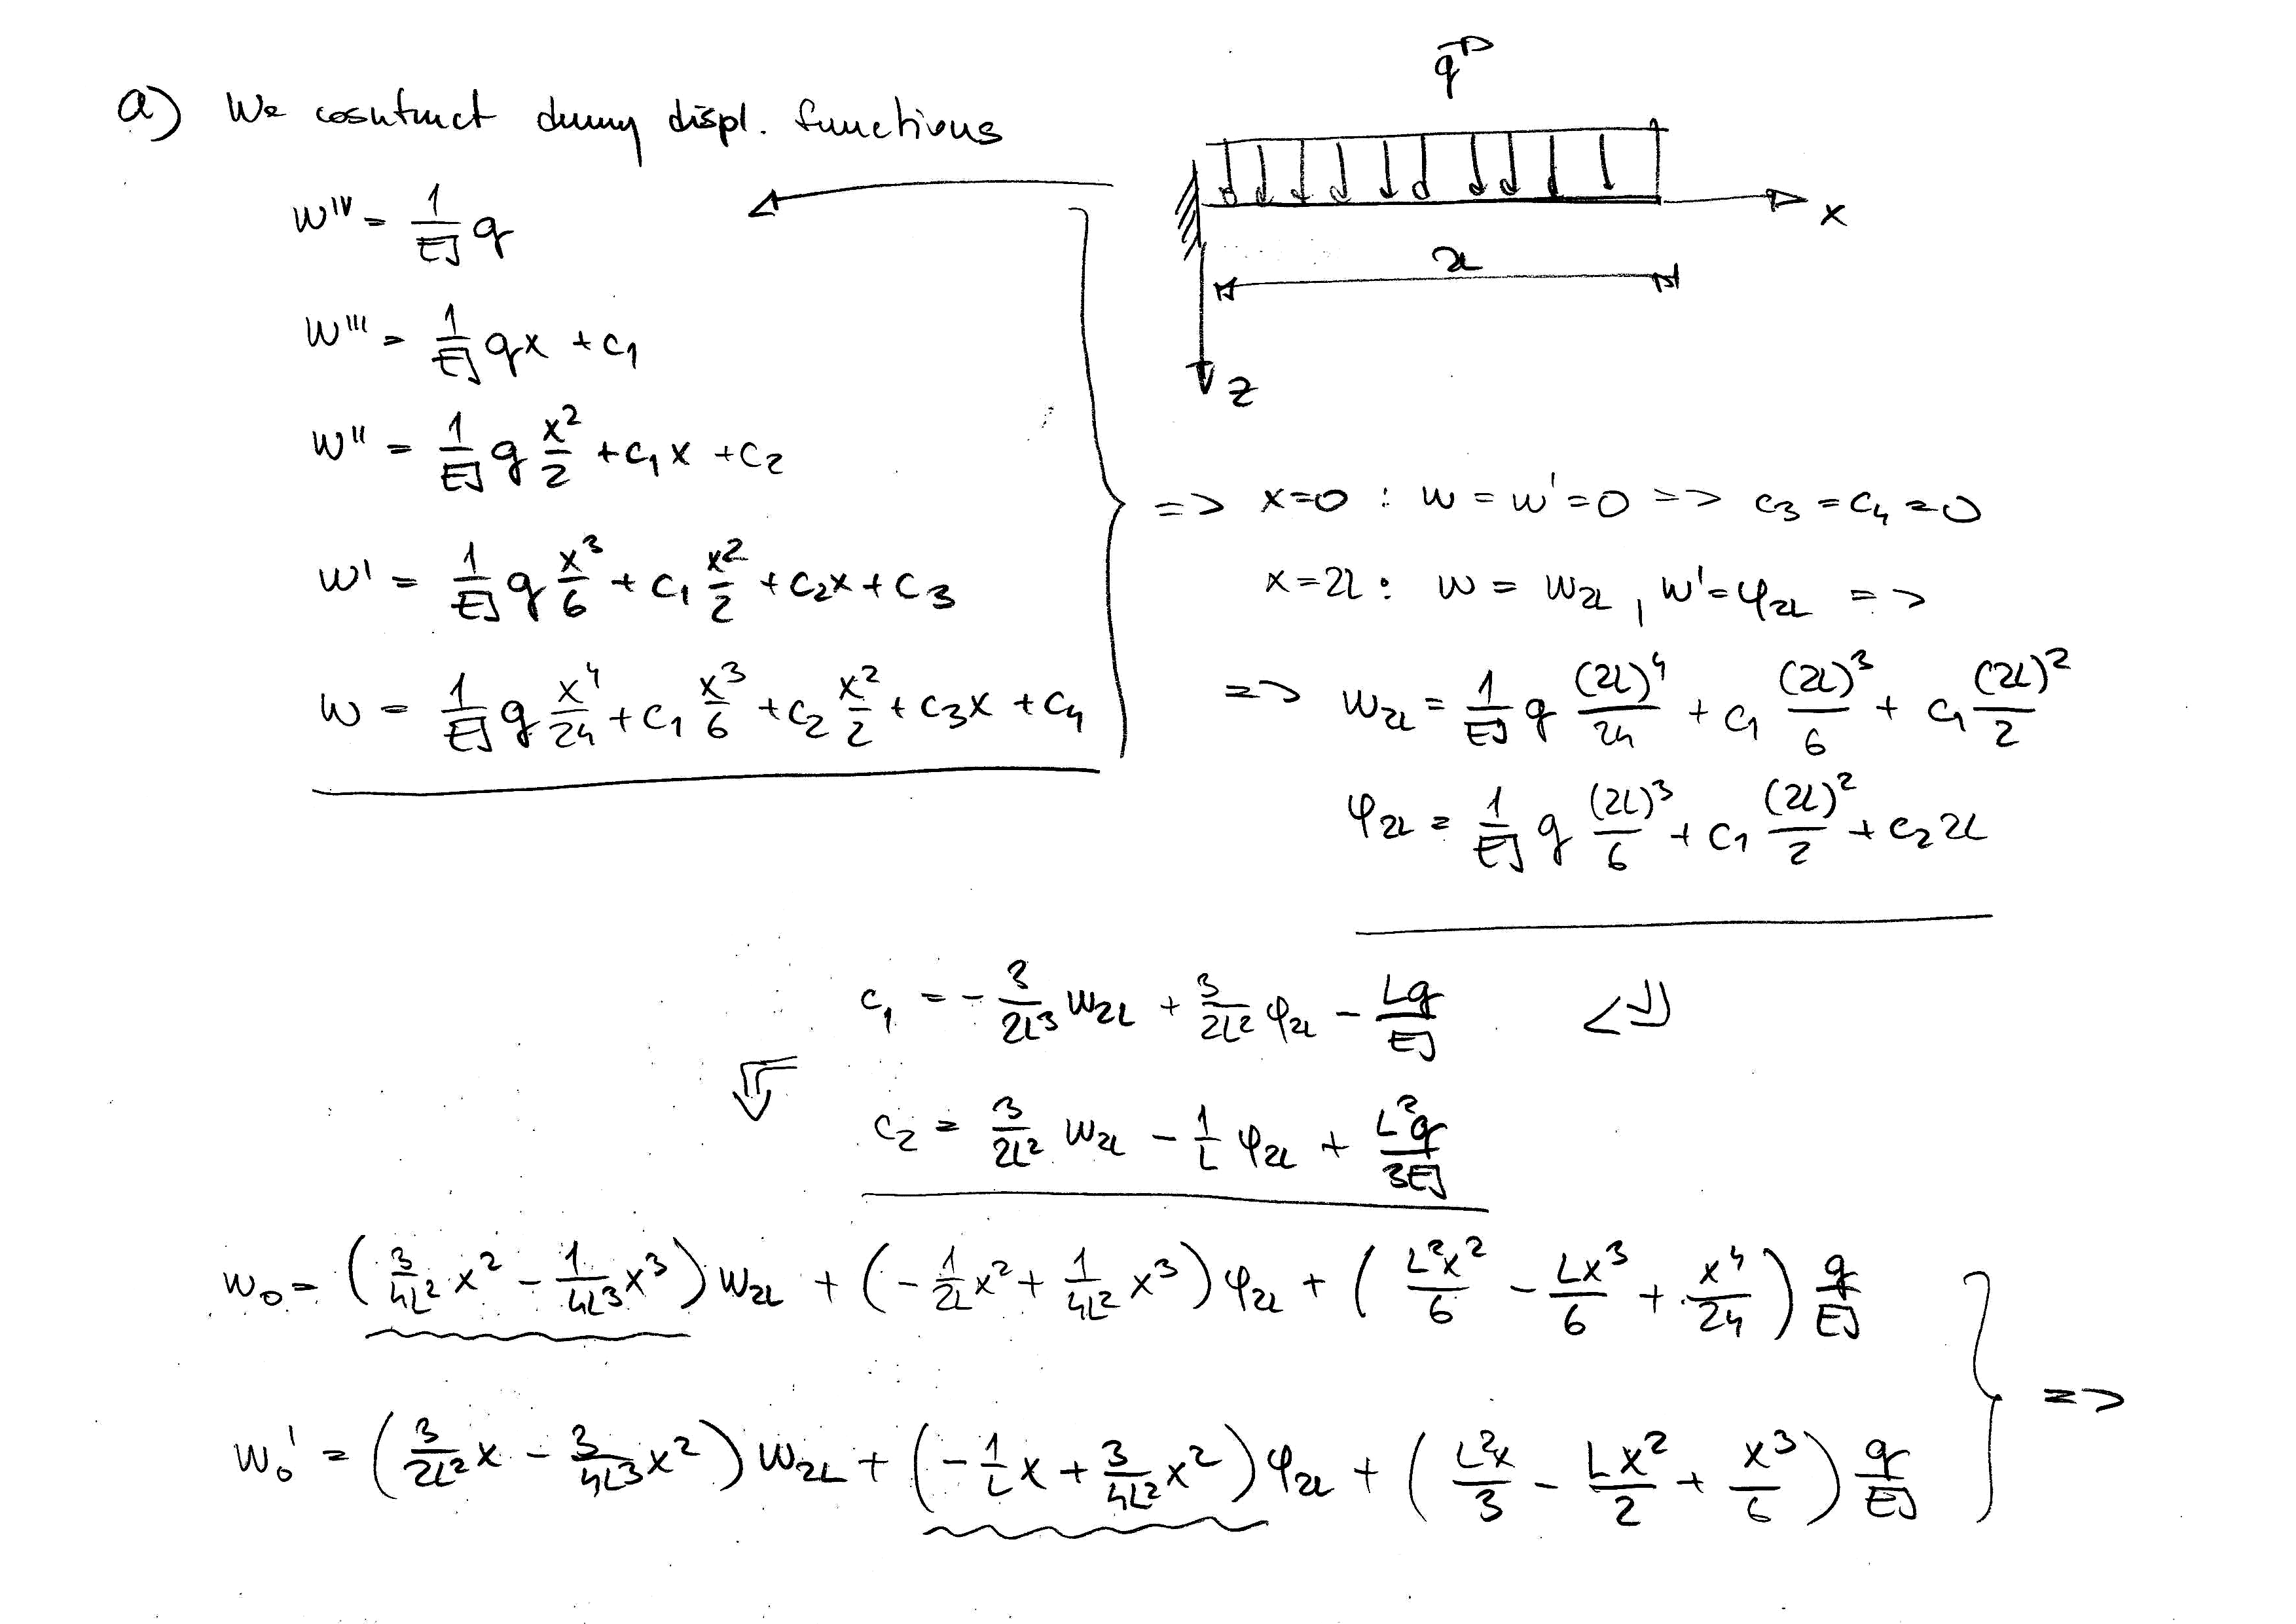 a) We cosntruct dummy displ. functions
q
x
2L
z
w'''' = 1/EJ q
w''' = 1/EJ qx + c₁
w'' = 1/EJ q x²/2 + c₁x + c₂
w' = 1/EJ q x³/6 + c₁ x²/2 + c₂x + c₃
w = 1/EJ q x⁴/24 + c₁ x³/6 + c₂ x²/2 + c₃x + c₄
=> x=0 : w = w' = 0 => c₃ = c₄ = 0
x=2L : w = w_2L , w' = φ_2L =>
=> w_2L = 1/EJ q (2L)⁴/24 + c₁ (2L)³/6 + c₁ (2L)²/2
φ_2L = 1/EJ q (2L)³/6 + c₁ (2L)²/2 + c₂ 2L
c₁ = - 3/2L³ w_2L + 3/2L² φ_2L - Lq/EJ
c₂ = 3/2L² w_2L - 1/L φ_2L + L²q/3EJ
w₀ = (3/4L² x² - 1/4L³ x³) w_2L + (- 1/2L x² + 1/4L² x³) φ_2L + (L²x²/6 - Lx³/6 + x⁴/24) q/EJ
w₀' = (3/2L² x - 3/4L³ x²) w_2L + (- 1/L x + 3/4L² x²) φ_2L + (L²x/3 - Lx²/2 + x³/6) q/EJ =>